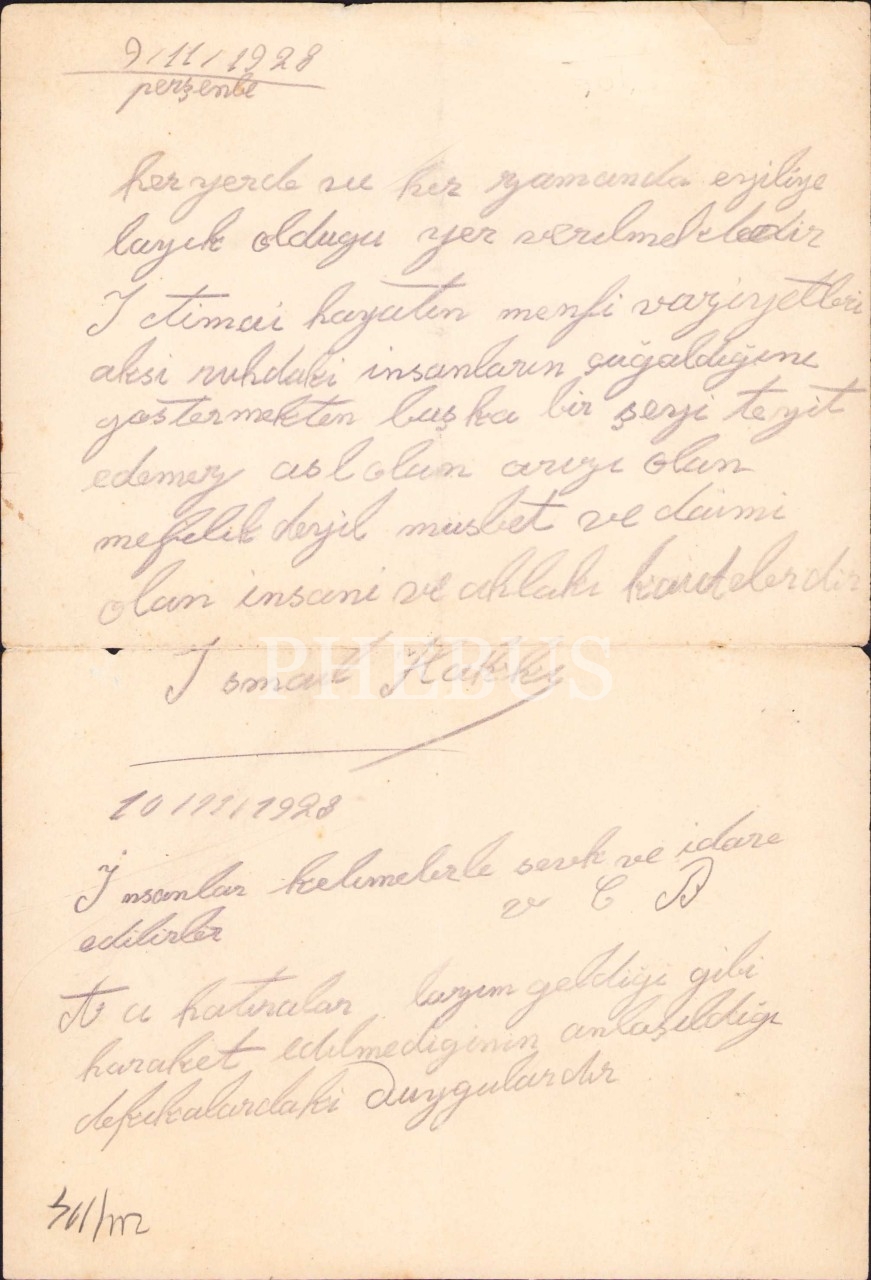 9/11/1928
perşenbe
her yerde ve her zamanda eyiliğe
layık oldugu yer verilmektedir
İctimai hayatın menfi vaziyetleri
aksi ruhdaki insanların çuğaldığını
göstermekten başka bir şeyi teyit
edemez asl olan arızi olan
mefilik deyil musbet ve daimi
olan insani ve ahlaki kaidelerdir
İsmail Hakkı
PHEBUS
10/11/1928
İnsanlar kelimelerle sevk ve idare
edilirler
v C B
Acı hatıralar lazım geldiği gibi
haraket edilmediginin anlaşıldığı
dekikalardaki duygulardır